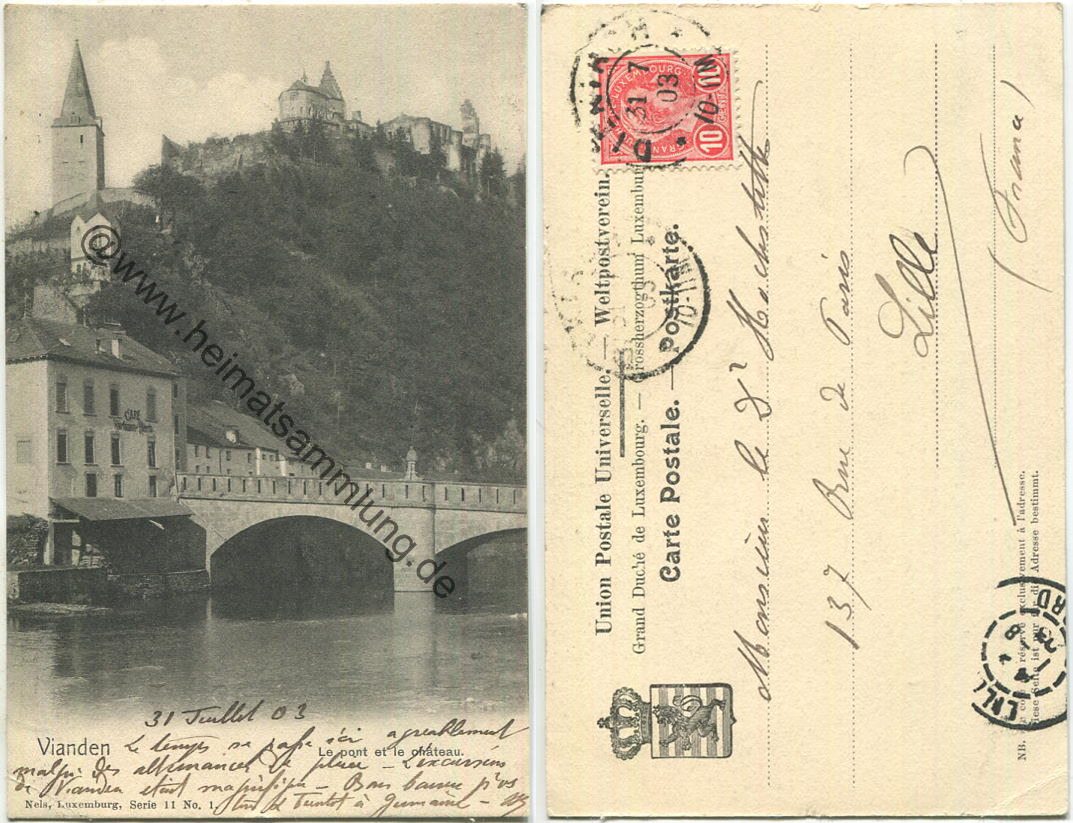 CAFÉ
@www.heimatsammlung.de
31 Juillet 03
Vianden
Le pont et le château.
Le temps se passe ici agréablement
malgré des alternances de pluie - L'excursion
de Vianden était magnifique - Bons baisers p'
Nels, Luxemburg, Serie 11 No. 1.
à Germaine -
LUXEMBOURG
10 10
CENTIMES
DIEKIRCH
31 7
03
10-11
31
03
10-11
Union Postale Universelle. — Weltpostverein.
Grand Duché de Luxembourg. — Grossherzogthum Luxemburg
Carte Postale. — Postkarte.
Monsieur le Dr
137 Rue de Paris
Lille
(France)
NB. Ce côté est réservé exclusivement à l'adresse.
Diese Seite ist nur für die Adresse bestimmt.
NORD